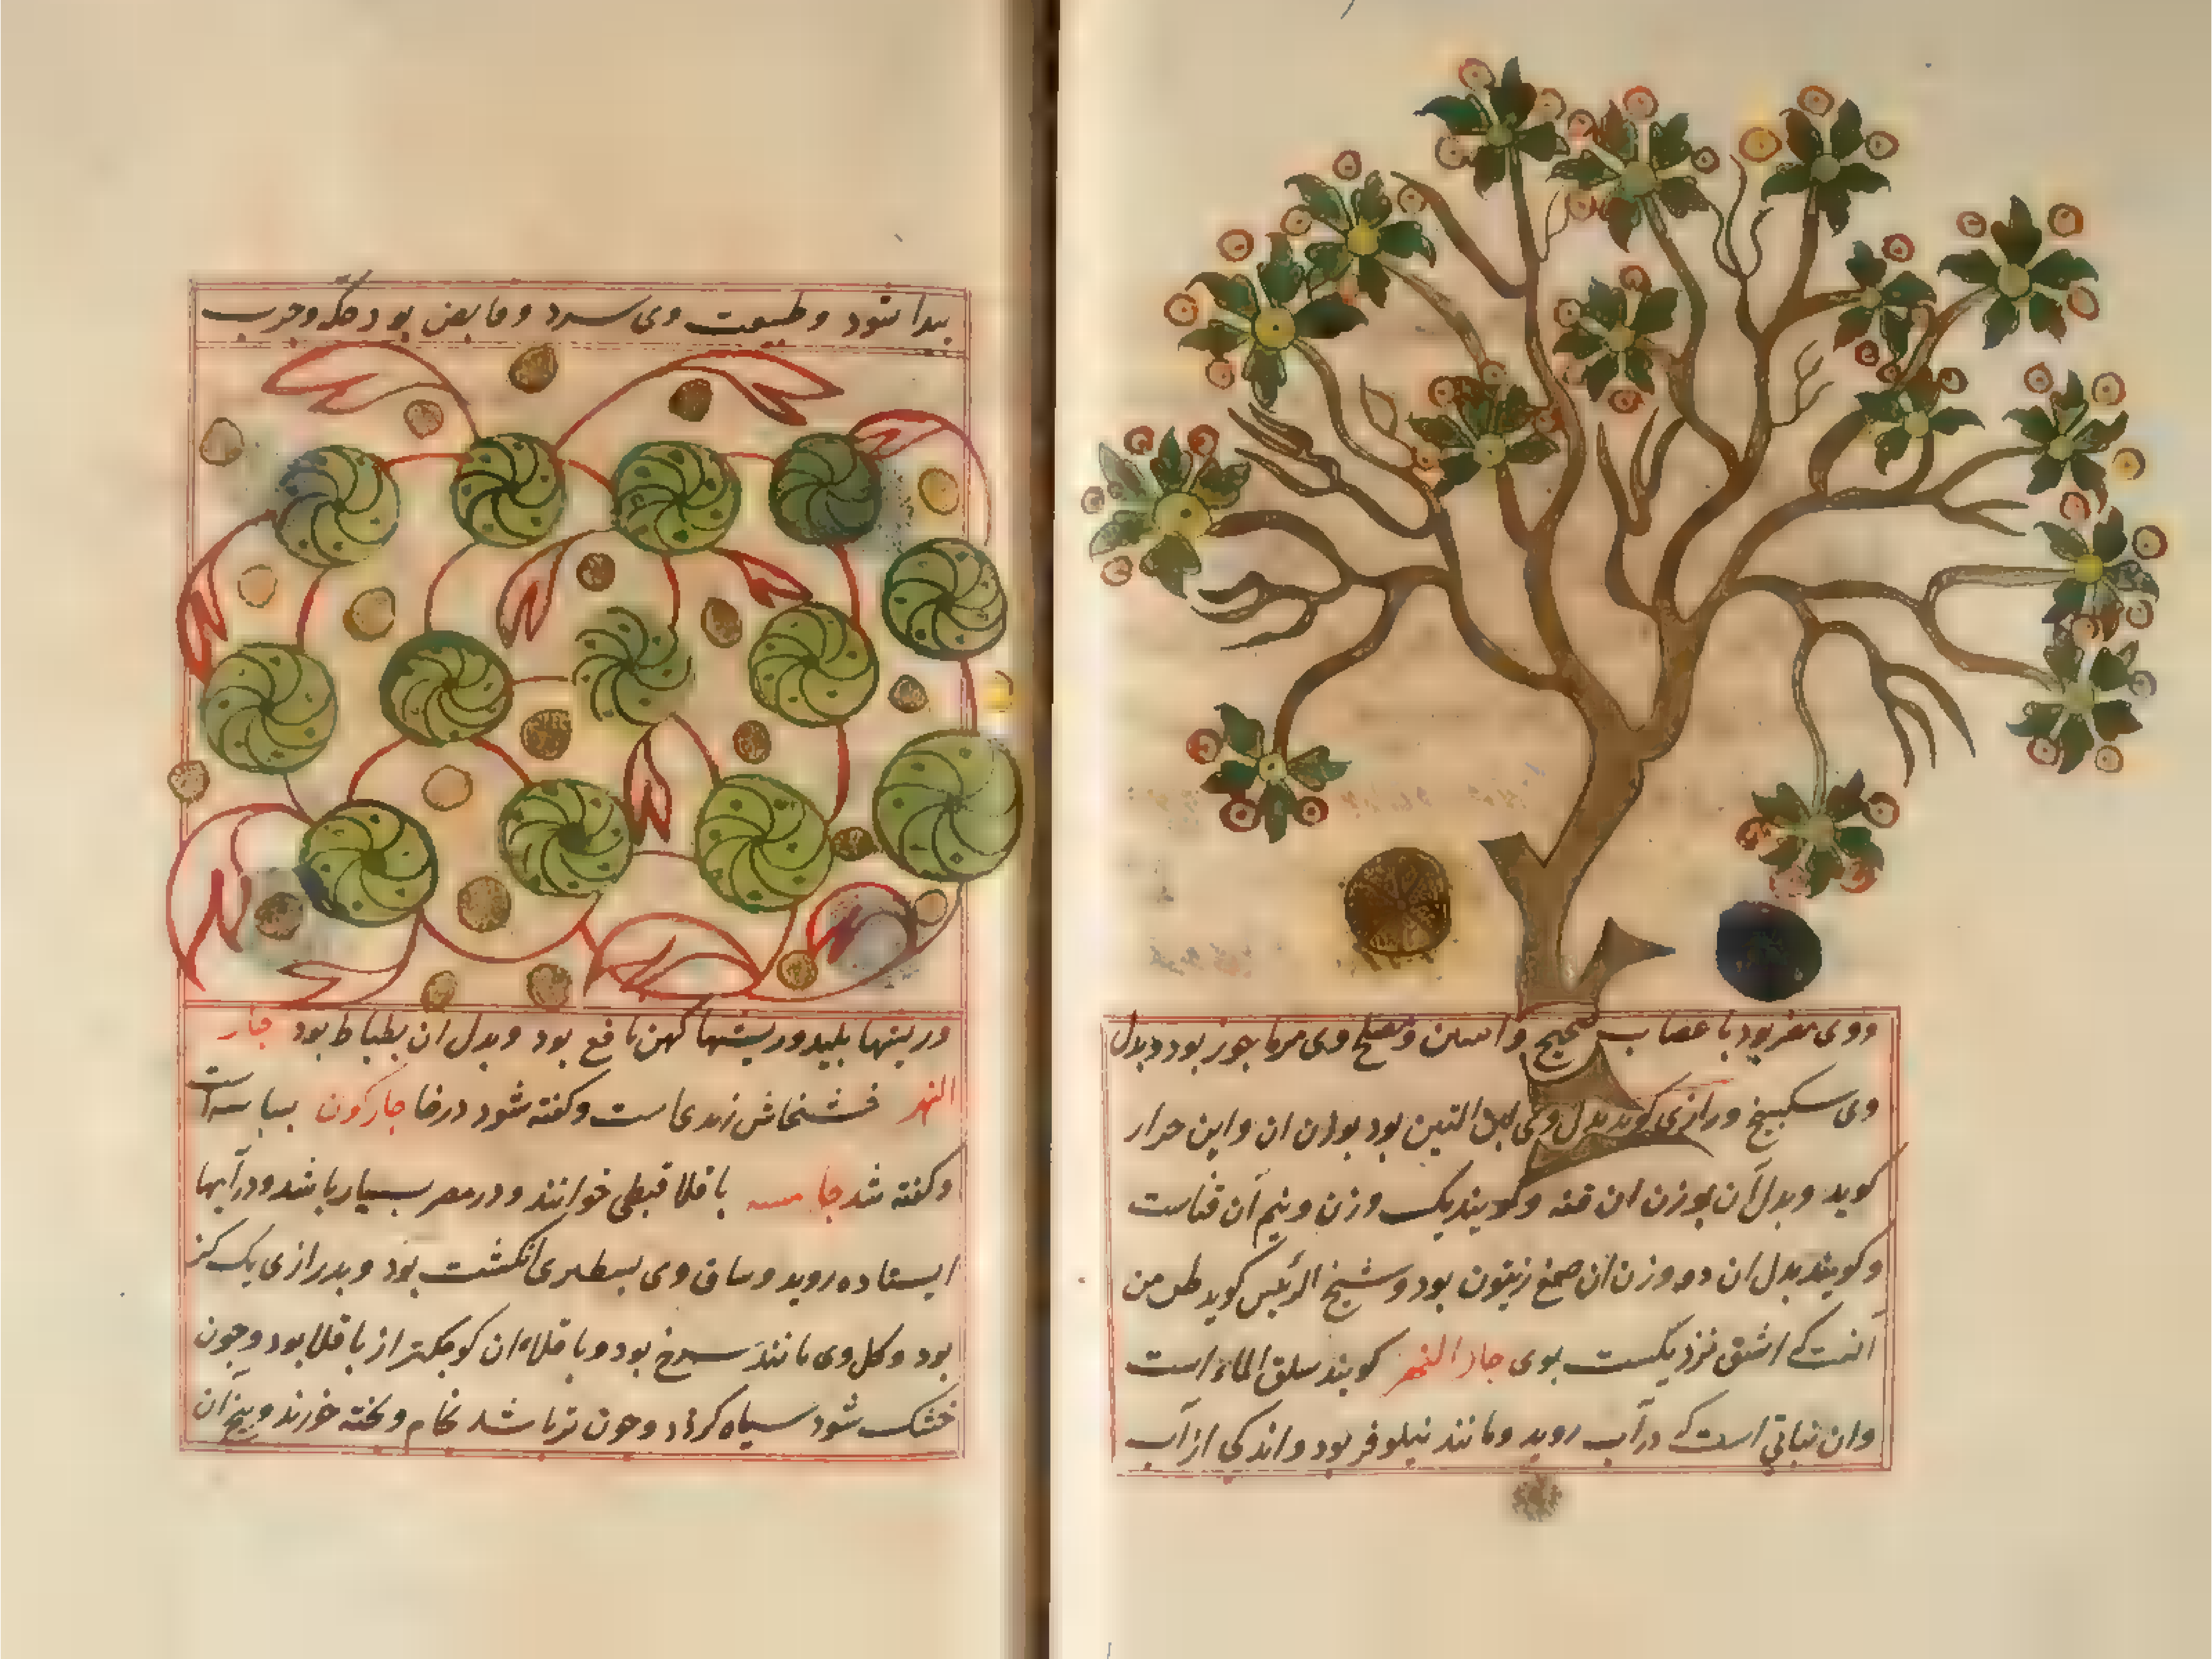 ووی مضر بود با عصاب صحیح و اسنین و مصلح وی مرماجوز بود و بدل
وی سکبینج و رازی کوید بدل وی لبن التین بود بوزن ان و این حرار
کوید و بدل آن بوزن ان قنه و کویند یک وزن و نیم آن قناست
و کویند بدل ان دو وزن ان صمغ زیتون بود و شیخ الرئیس کوید ظن من
آنست که اشق نزدیکست بوی جار النهر کویند سلق الماء است
وان نباتی است که در آب روید و مانند نیلوفر بود و اندکی از آب
پیدا شود و طبیعت وی سرد و قابض بود حکه و جرب
و ریشها پلید و ریشها کهن نافع بود و بدل ان بطباط بود جار
النهر خشخاش زبدی است و کفته شود در خا جارکون بسباسه است
و کفته شد جامسه باقلا قبطی خوانند و در مصر بسیار باشد و در آبها
ایستاده روید و ساق وی بسطبری انکشت بود و بدرازی یک کز
بود و کل وی مانند سرخ بود و باقلاء ان کوچکتر از باقلا بود و چون
خشک شود سیاه کردد و چون تر باشد خام و پخته خورند و بیخ آن